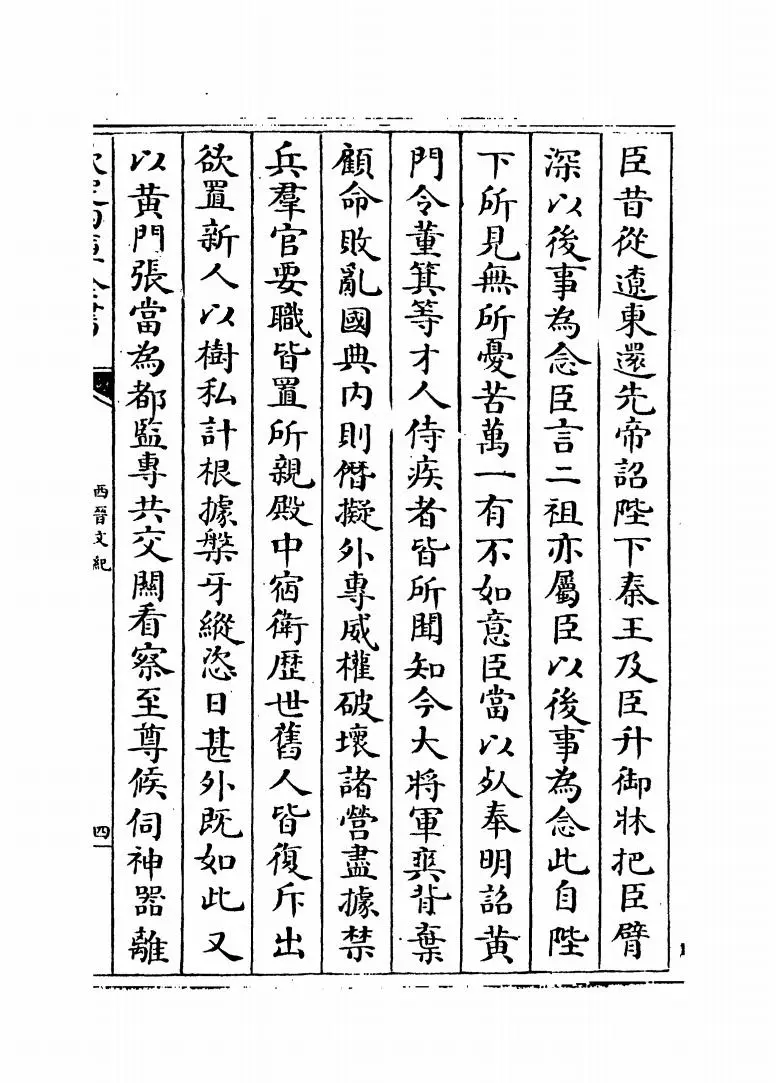 臣昔從遼東還先帝詔陛下秦王及臣升御牀把臣臂
深以後事為念臣言二祖亦屬臣以後事為念此自陛
下所見無所憂苦萬一有不如意臣當以死奉明詔黄
門令董箕等才人侍疾者皆所聞知今大將軍爽背棄
顧命敗亂國典内則僭擬外專威權破壞諸營盡據禁
兵羣官要職皆置所親殿中宿衛歴世舊人皆復斥出
欲置新人以樹私計根據槃牙縱恣日甚外既如此又
以黄門張當為都監專共交關看察至尊候伺神器離
西晉文紀
四